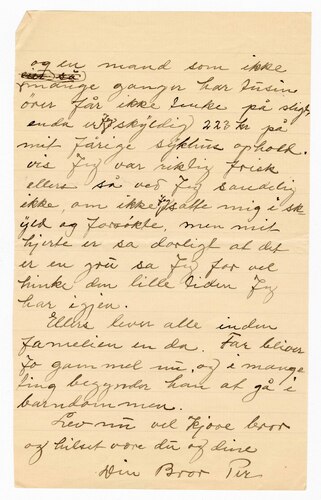 og en mand som ikke
mange ganger har tusin
över får ikke tenke på sligt
enda er Jeg skyldig 223 kr på
mit fårige sykhus ophold.
vis Jeg var riktig frisk
ellers så ved Jeg sandelig
ikke, om ikke Jeg satte mig i sk
yld og forsökte, men mit
hjerte er sa dorligt at det
er en gru sa Jeg for vel
hinke den lille tiden Jeg
har igjen.
Ellers lever alle inden
familien en da. Far bliver
jo gammel nu, og i mange
ting begynder han at gå i
barndommen.
Lev nu vel kjære bror
og hilset være du og dine
Din Bror Per